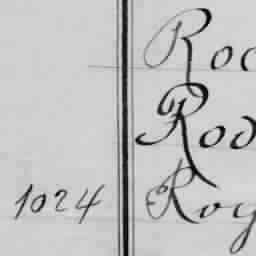 Roc
Rod
1024 Roy